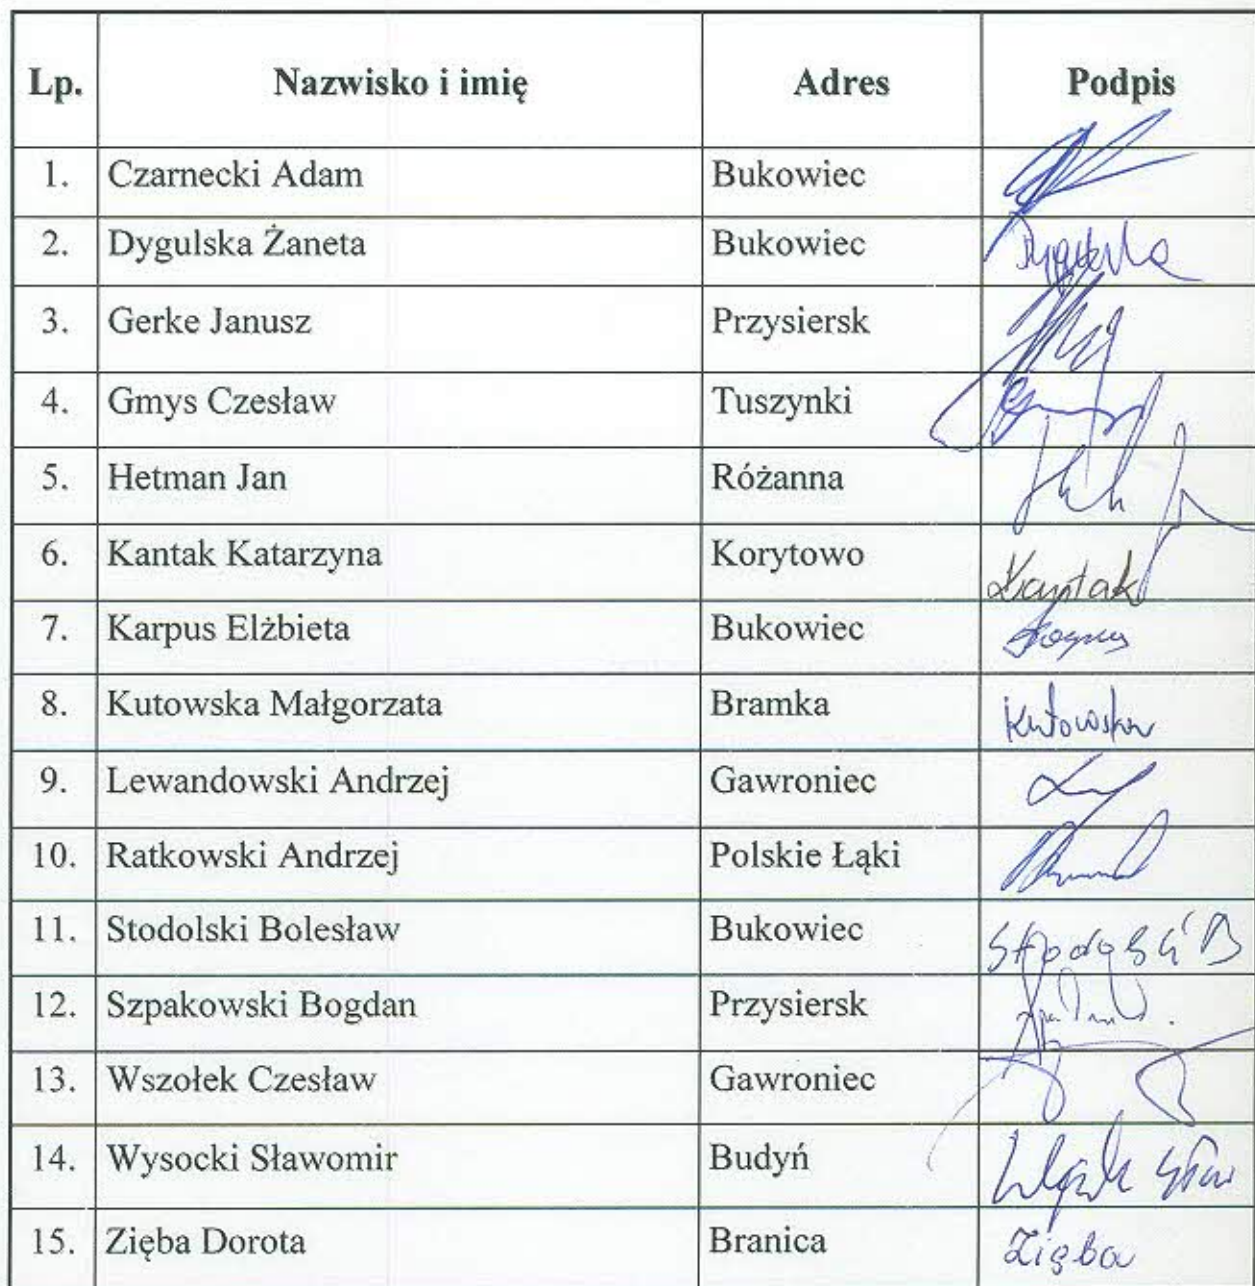 Lp. Nazwisko i imię Adres Podpis
1. Czarnecki Adam Bukowiec
2. Dygulska Żaneta Bukowiec
3. Gerke Janusz Przysiersk
4. Gmys Czesław Tuszynki
5. Hetman Jan Różanna
6. Kantak Katarzyna Korytowo Kantak
7. Karpus Elżbieta Bukowiec
8. Kutowska Małgorzata Bramka Kutowska
9. Lewandowski Andrzej Gawroniec
10. Ratkowski Andrzej Polskie Łąki
11. Stodolski Bolesław Bukowiec
12. Szpakowski Bogdan Przysiersk
13. Wszołek Czesław Gawroniec
14. Wysocki Sławomir Budyń
15. Zięba Dorota Branica Zięba